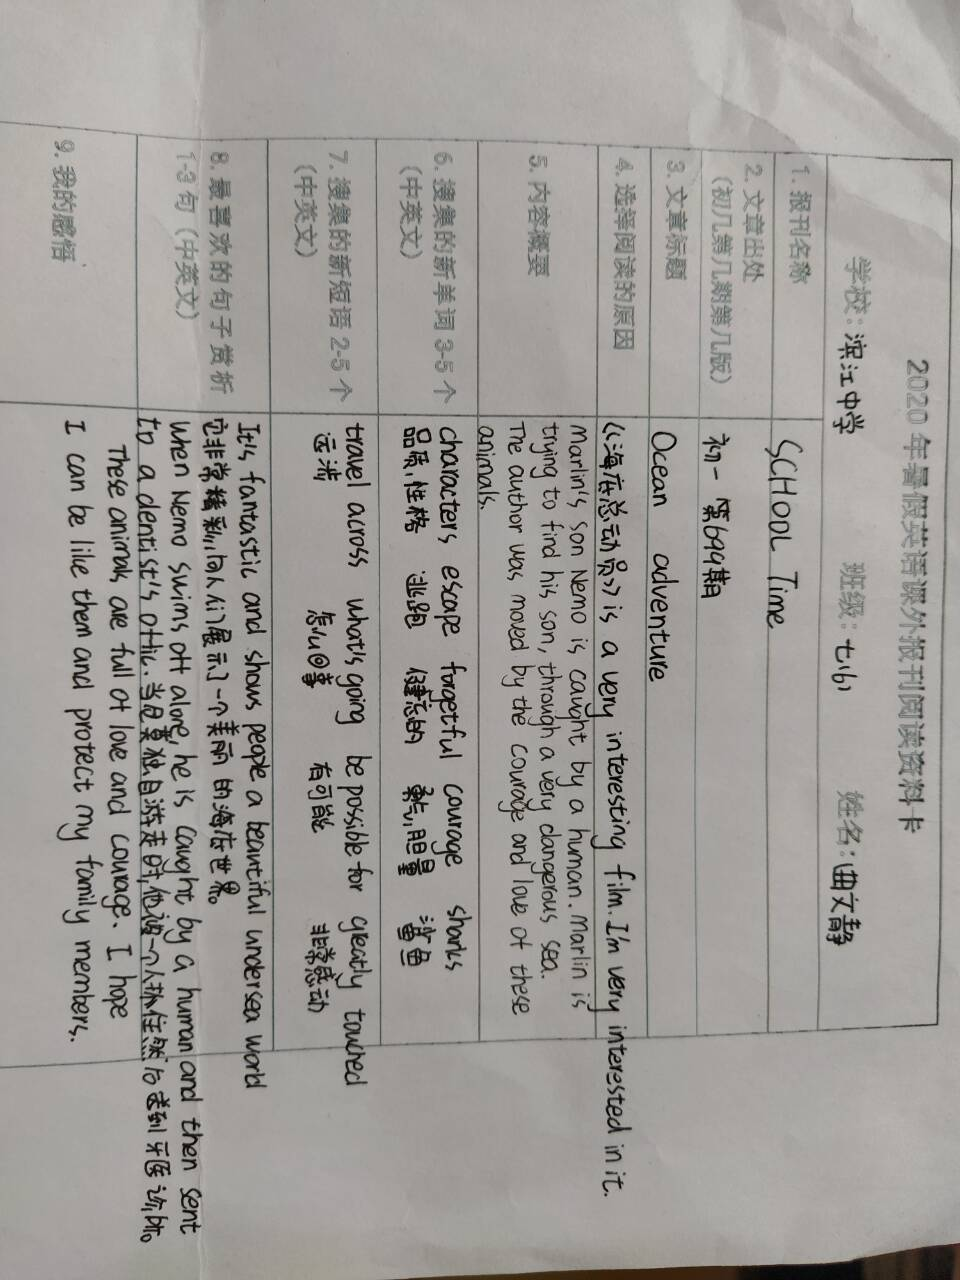 2020年暑假英语课外报刊阅读资料卡
学校：滨江中学 班级：七(6) 姓名：曲文静
1. 报刊名称 SCHOOL Time
2. 文章出处
（初几第几期第几版） 初一 第699期
3. 文章标题 Ocean adventure
4. 选择阅读的原因 《海底总动员》 is a very interesting film. I'm very interested in it.
5. 内容概要 Marlin's son Nemo is caught by a human. Marlin is
trying to find his son, through a very dangerous sea.
The author was moved by the courage and love of these
animals.
6. 搜集的新单词 3-5个 characters escape forgetful courage sharks
（中英文） 品质,性格 逃跑 健忘的 勇气,胆量 鲨鱼
7. 搜集的新短语 2-5个 travel across what's going be possible for greatly touched
（中英文） 远涉 怎么回事 有可能 非常感动
8. 最喜欢的句子赏析 It's fantastic and shows people a beautiful undersea world
它非常精彩,向人们展示了一个美丽的海底世界。
1-3句（中英文） when Nemo swims off alone, he is caught by a human and then sent
to a dentist's offic. 当尼莫独自游走时,他被一个人抓住然后送到牙医诊所。
9. 我的感悟 These animals are full of love and courage. I hope
I can be like them and protect my family members.